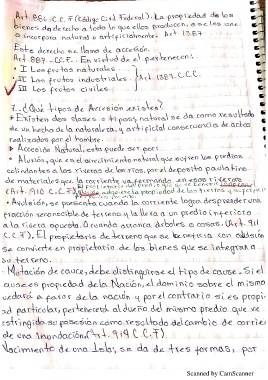 Art. 886. C.C.F (Código Civil Federal). La propiedad de los
bienes da derecho a todo lo que ellos producen, o se les une
o incorpora natural o artificialmente. Art. 1387
Este derecho se llama de accesión.
Art. 887 -CC.F- En virtud de él pertenecen:
• I Los frutos naturales
II Los frutos industriales Art. 1881. C.C.C.
III Los frutos civiles.
7. ¿Qué tipos de Accesión existen?
+ Existen dos clases o tipos, natural se da como resultado
de un hecho de la naturaleza, y artificial consecuencia de actos
realizados por el hombre.
▸ Accesión Natural, esta puede ser por:
• Aluvión, que es el acrecimiento natural que sufren los predios
colindantes a las riveras de los ríos, por el deposito paulatino
de materiales que la corriente va formando en esas riveras
(Art. 910 C.C.F)
• Avulsión, se presenta cuando la corriente logra desprender una
fracción reconocible de terreno y la lleva a un predio inferior o
a la rivera opuesta. O cuando arranca árboles o cosas. (Art. 911
C.C.F). El propietario de terreno que se beneficia con
se convierte en propietario de los bienes que se integran a
su terreno.
· Mutación de cauce, debe distinguirse el tipo de cause. Si el
cause es propiedad de la Nación, el dominio sobre el mismo
quedará a favor de la nación y por el contrario si es propi-
ad particular, pertenecerá al dueño del mismo predio que ve
restringido su posesión como resultado del cambio de corrien
de una inundación. (Art. 914 C.C.F)
Nacimiento de una Isla, se da de tres formas; por
Scanned by CamScanner